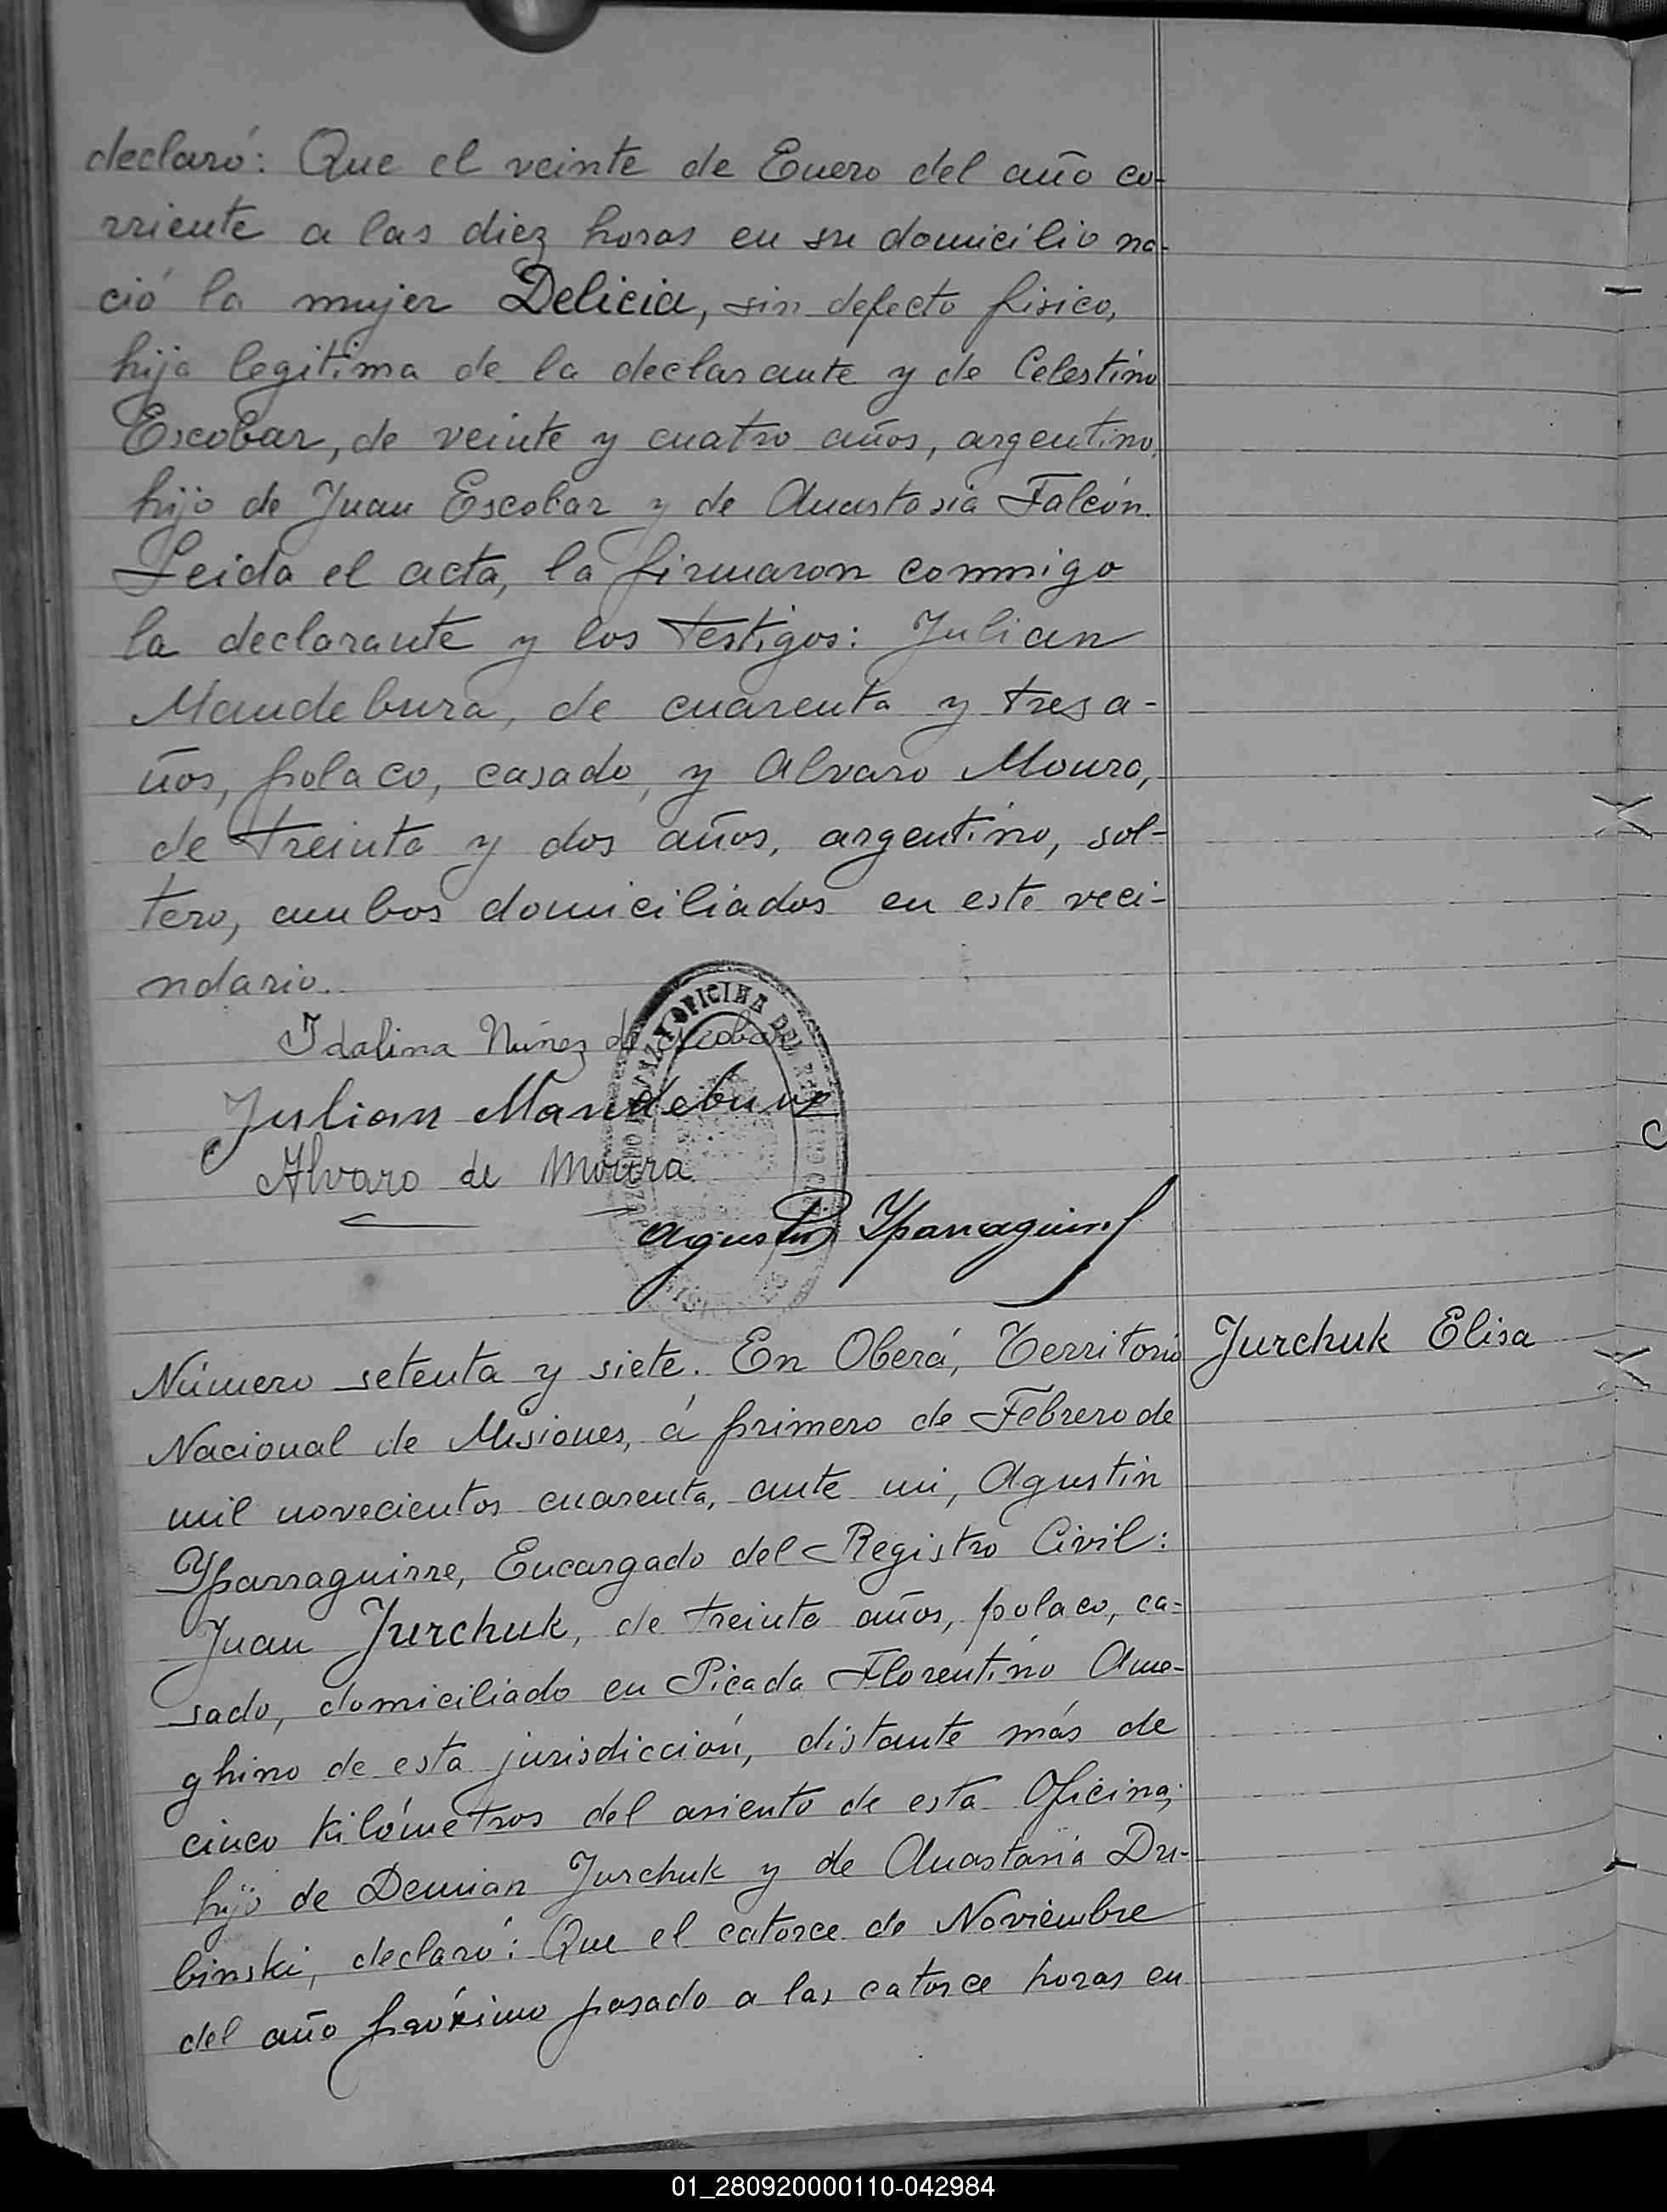 declaró: Que el veinte de Enero del año co-
rriente a las diez horas en su domicilio na-
ció la mujer Delicia, sin defecto fisico,
hija legitima de la declarante y de Celestino
Escobar, de veinte y cuatro años, argentino,
hijo de Juan Escobar y de Anastasia Falcón.
Leida el acta, la firmaron conmigo
la declarante y los testigos: Julian
Mandebura, de cuarenta y tres a-
ños, polaco, casado, y Alvaro Moura,
de treinta y dos años, argentino, sol-
tero, ambos domiciliados en este veci-
ndario.
OFICINA DEL
Idalina Núñez de Escobar
Julian Mandebura
Alvaro de Moura
Agustin Yparraguirre
Número setenta y siete. En Oberá, Territorio
Jurchuk Elisa
Nacional de Misiones, á primero de Febrero de
mil novecientos cuarenta, ante mi, Agustin
Yparraguirre, Encargado del Registro Civil:
Juan Jurchuk, de treinta años, polaco, ca-
sado, domiciliado en Picada Florentino Ame-
ghino de esta jurisdicción, distante más de
cinco kilómetros del asiento de esta Oficina;
hijo de Demian Jurchuk y de Anastasia Du-
binski, declaró: Que el catorce de Noviembre
del año próximo pasado a las catorce horas en
01_280920000110-042984